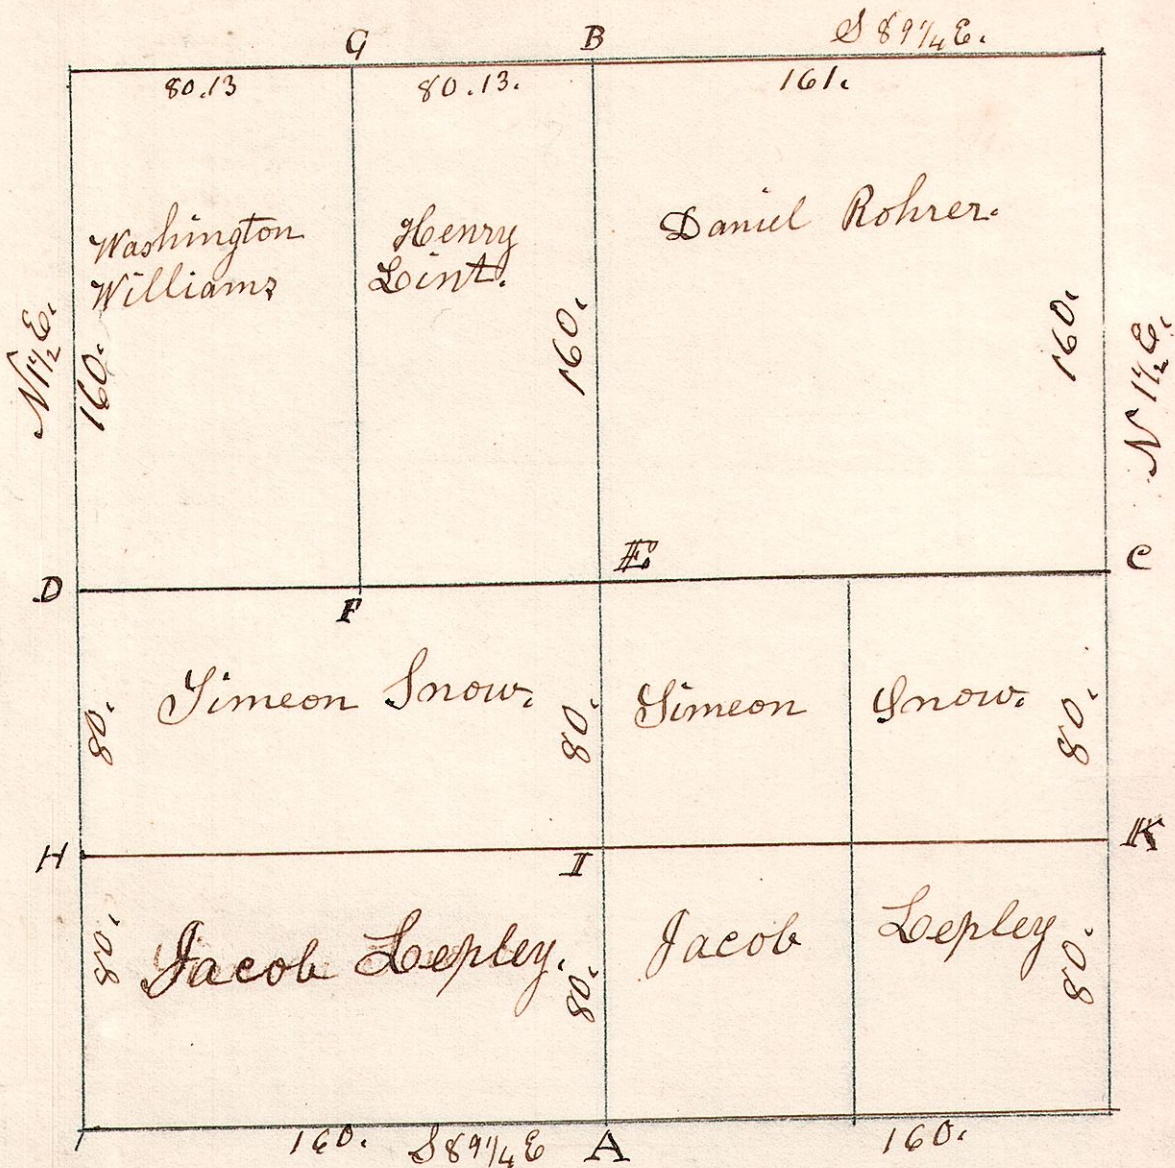 G B S 89 1/4 E.
80.13 80.13. 161.
Washington
Williams
Henry
Lint.
Daniel Rohrer.
N 1 1/2 E.
160.
160.
160.
N 1 1/2 E.
D F E C
80. Simeon Snow. 80. Simeon Snow. 80.
H I K
80. Jacob Lepley. 80. Jacob Lepley 80.
160. S 89 1/4 E A 160.